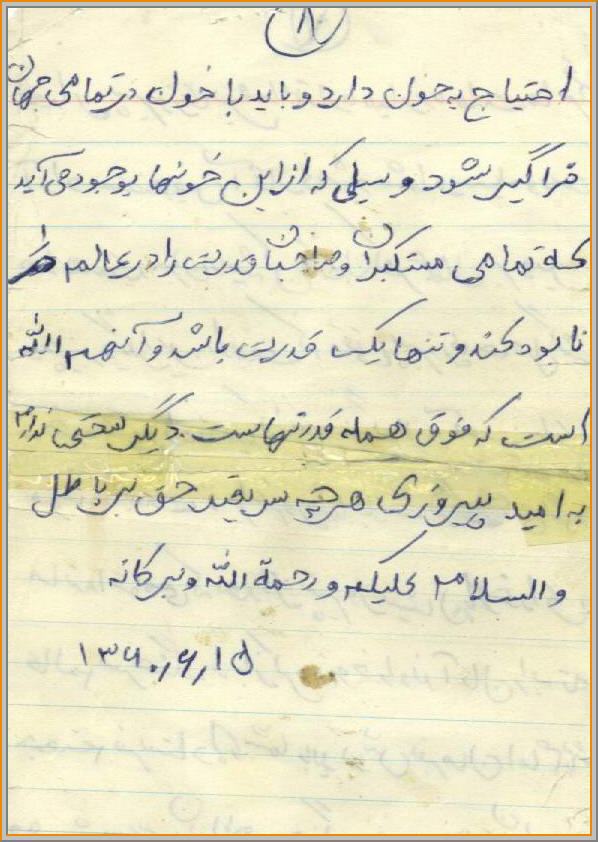 ۸
احتیاج به خون دارد و باید با خون در تمامی جهان
فراگیر شود و سیلی که از این خونها بوجود می آید
که تمامی مستکبران و صاحبان قدرت را در عالم را
نابود کند و تنها یک قدرت باشد و آنهم الله
است که فوق همه قدرتهاست. دیگر سخنی ندارم
به امید پیروزی هر چه سریعتر حق بر باطل
والسلام علیکم و رحمة الله و برکاته
۱۳۶۰,۶,۱۵